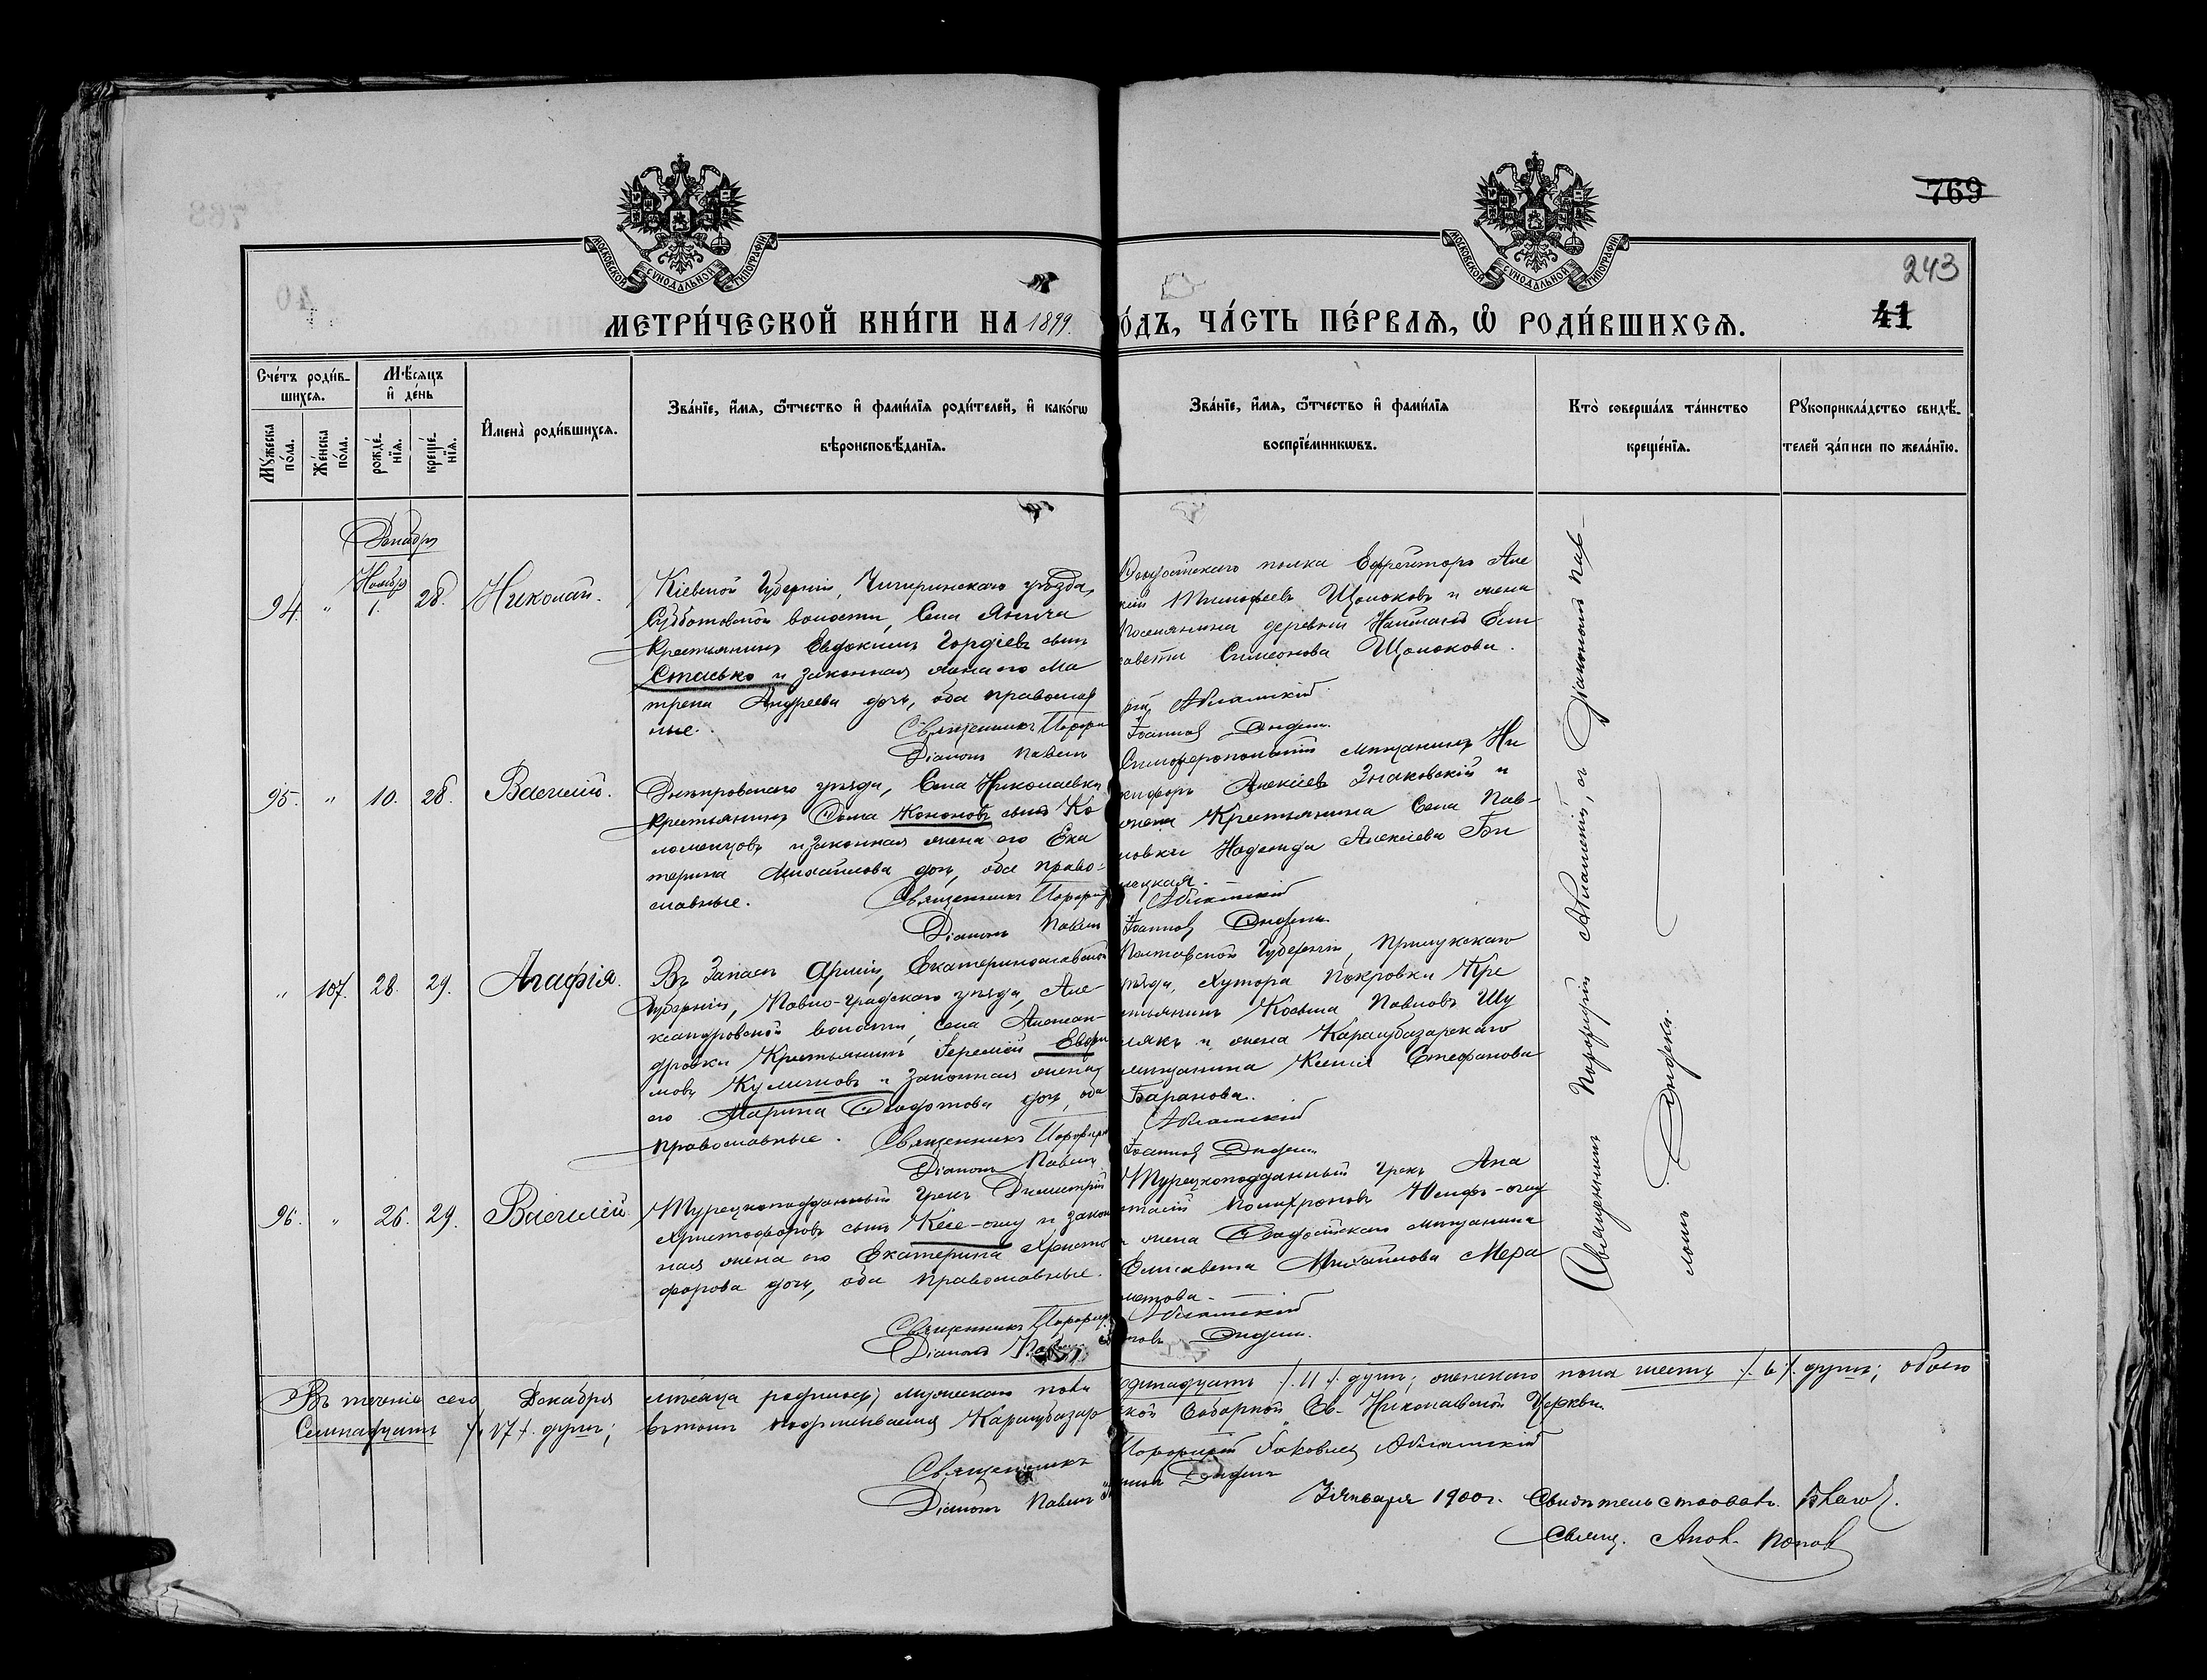 769
243
41
МОСКОВСКОЙ СѴНОДАЛЬНОЙ ТИПОГРАФІИ
МОСКОВСКОЙ СѴНОДАЛЬНОЙ ТИПОГРАФІИ
МЕТРИ́ЧЕСКОЙ КНИ́ГИ НА 1899. О́ДЪ, ЧА́СТЬ ПЕ́РВАѦ, Ѡ҆ РОДИ́ВШИХСѦ.
Сче́тъ роди́в-
шихсѧ.
Мꙋ́жеска по́ла.
Же́нска по́ла.
Мѣ́сѧцъ
и҆ де́нь
рожде́-
нїѧ.
креще́-
нїѧ.
И҆мена̀ роди́вшихсѧ.
Зва́нїе, и҆́мѧ, ѻ҆́тчество и҆ фами́лїѧ роди́телей, и҆ како́гѡ
вѣроисповѣ́данїѧ.
Зва́нїе, и҆́мѧ, ѻ҆́тчество и҆ фами́лїѧ
воспрїе́мникѡвъ.
Кто̀ соверша́лъ та́инство
креще́нїѧ.
Рꙋкоприкла́дство свидѣ́-
телей за́писи по жела́нїю.
Декабрь
Ноябр
94. " 1. 28. Николай.
Кіевской Губерніи, Чигиринскаго уѣзда,
Субботовской волости, Села Янича
Крестьянинъ Евдокимъ Гордіевъ сынъ
Стасько и законная жена его Ма
трена Андреева дочь, оба православ
ные.
Священникъ Порфи
Діаконъ Павелъ
полка Ефрейторъ Але
ксій Тимофеевъ Щолоковъ и жена
Поселянина деревни Ели
савета Симеонова Щолокова.
рій Абламскій
Іоанновъ Диден
95. " 10. 28. Василій.
Днѣпровскаго уѣзда, Села Николаевки
Крестьянинъ Ѳома Кононовъ сынъ Ко
ломенцовъ и законная жена его Ека
терина Михайлова дочь, оба право-
славные.
Священникъ Порфир
Діаконъ Павелъ
Симферопольскій мѣщанинъ Ни
кифоръ Алексіевъ Знаковскій и
жена Крестьянина Села Пав-
ловки Надежда Алексіева Би
лецкая.
Абламскій
Іоанновъ Диден
" 107. 28. 29. Агафія.
Въ Запасѣ Арміи, Екатеринославской
Губерніи, Павло-градскаго уѣзда, Але
ксандровской волости, села Алексан-
дровки Крестьянинъ Іеремій Евфи
мовъ Кулишовъ и законная жена
его Марина Ѳеодотова дочь, оба
православные.
Священникъ Порфир
Діаконъ Павелъ
Полтавской Губерніи, Прилукскаго
уѣзда, хутора Покровки Кре
стьянинъ Косьма Павловъ Шу
лякъ и жена Карасубазарскаго
мѣщанина Ксенія Стефанова
Баранова.
Абламскій
Іоанновъ Диден
96. " 26. 29. Василій
Турецкоподданный Грекъ Димитрій
Христофоровъ сынъ Келе-оглу и закон
ная жена его Екатерина Христо
форова дочь, оба православные.
Священникъ Порфир
Діаконъ Павелъ
Турецкоподданный Грекъ Ана
стасій Полихроновъ Юсифъ-оглу
и жена Ѳеодосійскаго мѣщанина
Елисавета Михайлова
метова.
Абламскій
новъ Диден
Священникъ Порфирій Абламскій, съ Діакономъ Пав-
ломъ Диденко.
Въ теченіе сего Декабря мѣсяца родилось мужескаго пола одинадцать /.11./ душъ; женскаго пола шесть /.6./ душъ; обоего
Семнадцать /.17./ душъ; въ томъ подписываемся Карасубазарской Соборной Св. Николаевской Церкви.
Священникъ Порфирій Іаковлевъ Абламскій
Діаконъ Павелъ Диденъ
3 Января 1900 г. Свидѣтельствовалъ Благ.
Свящ. Попов